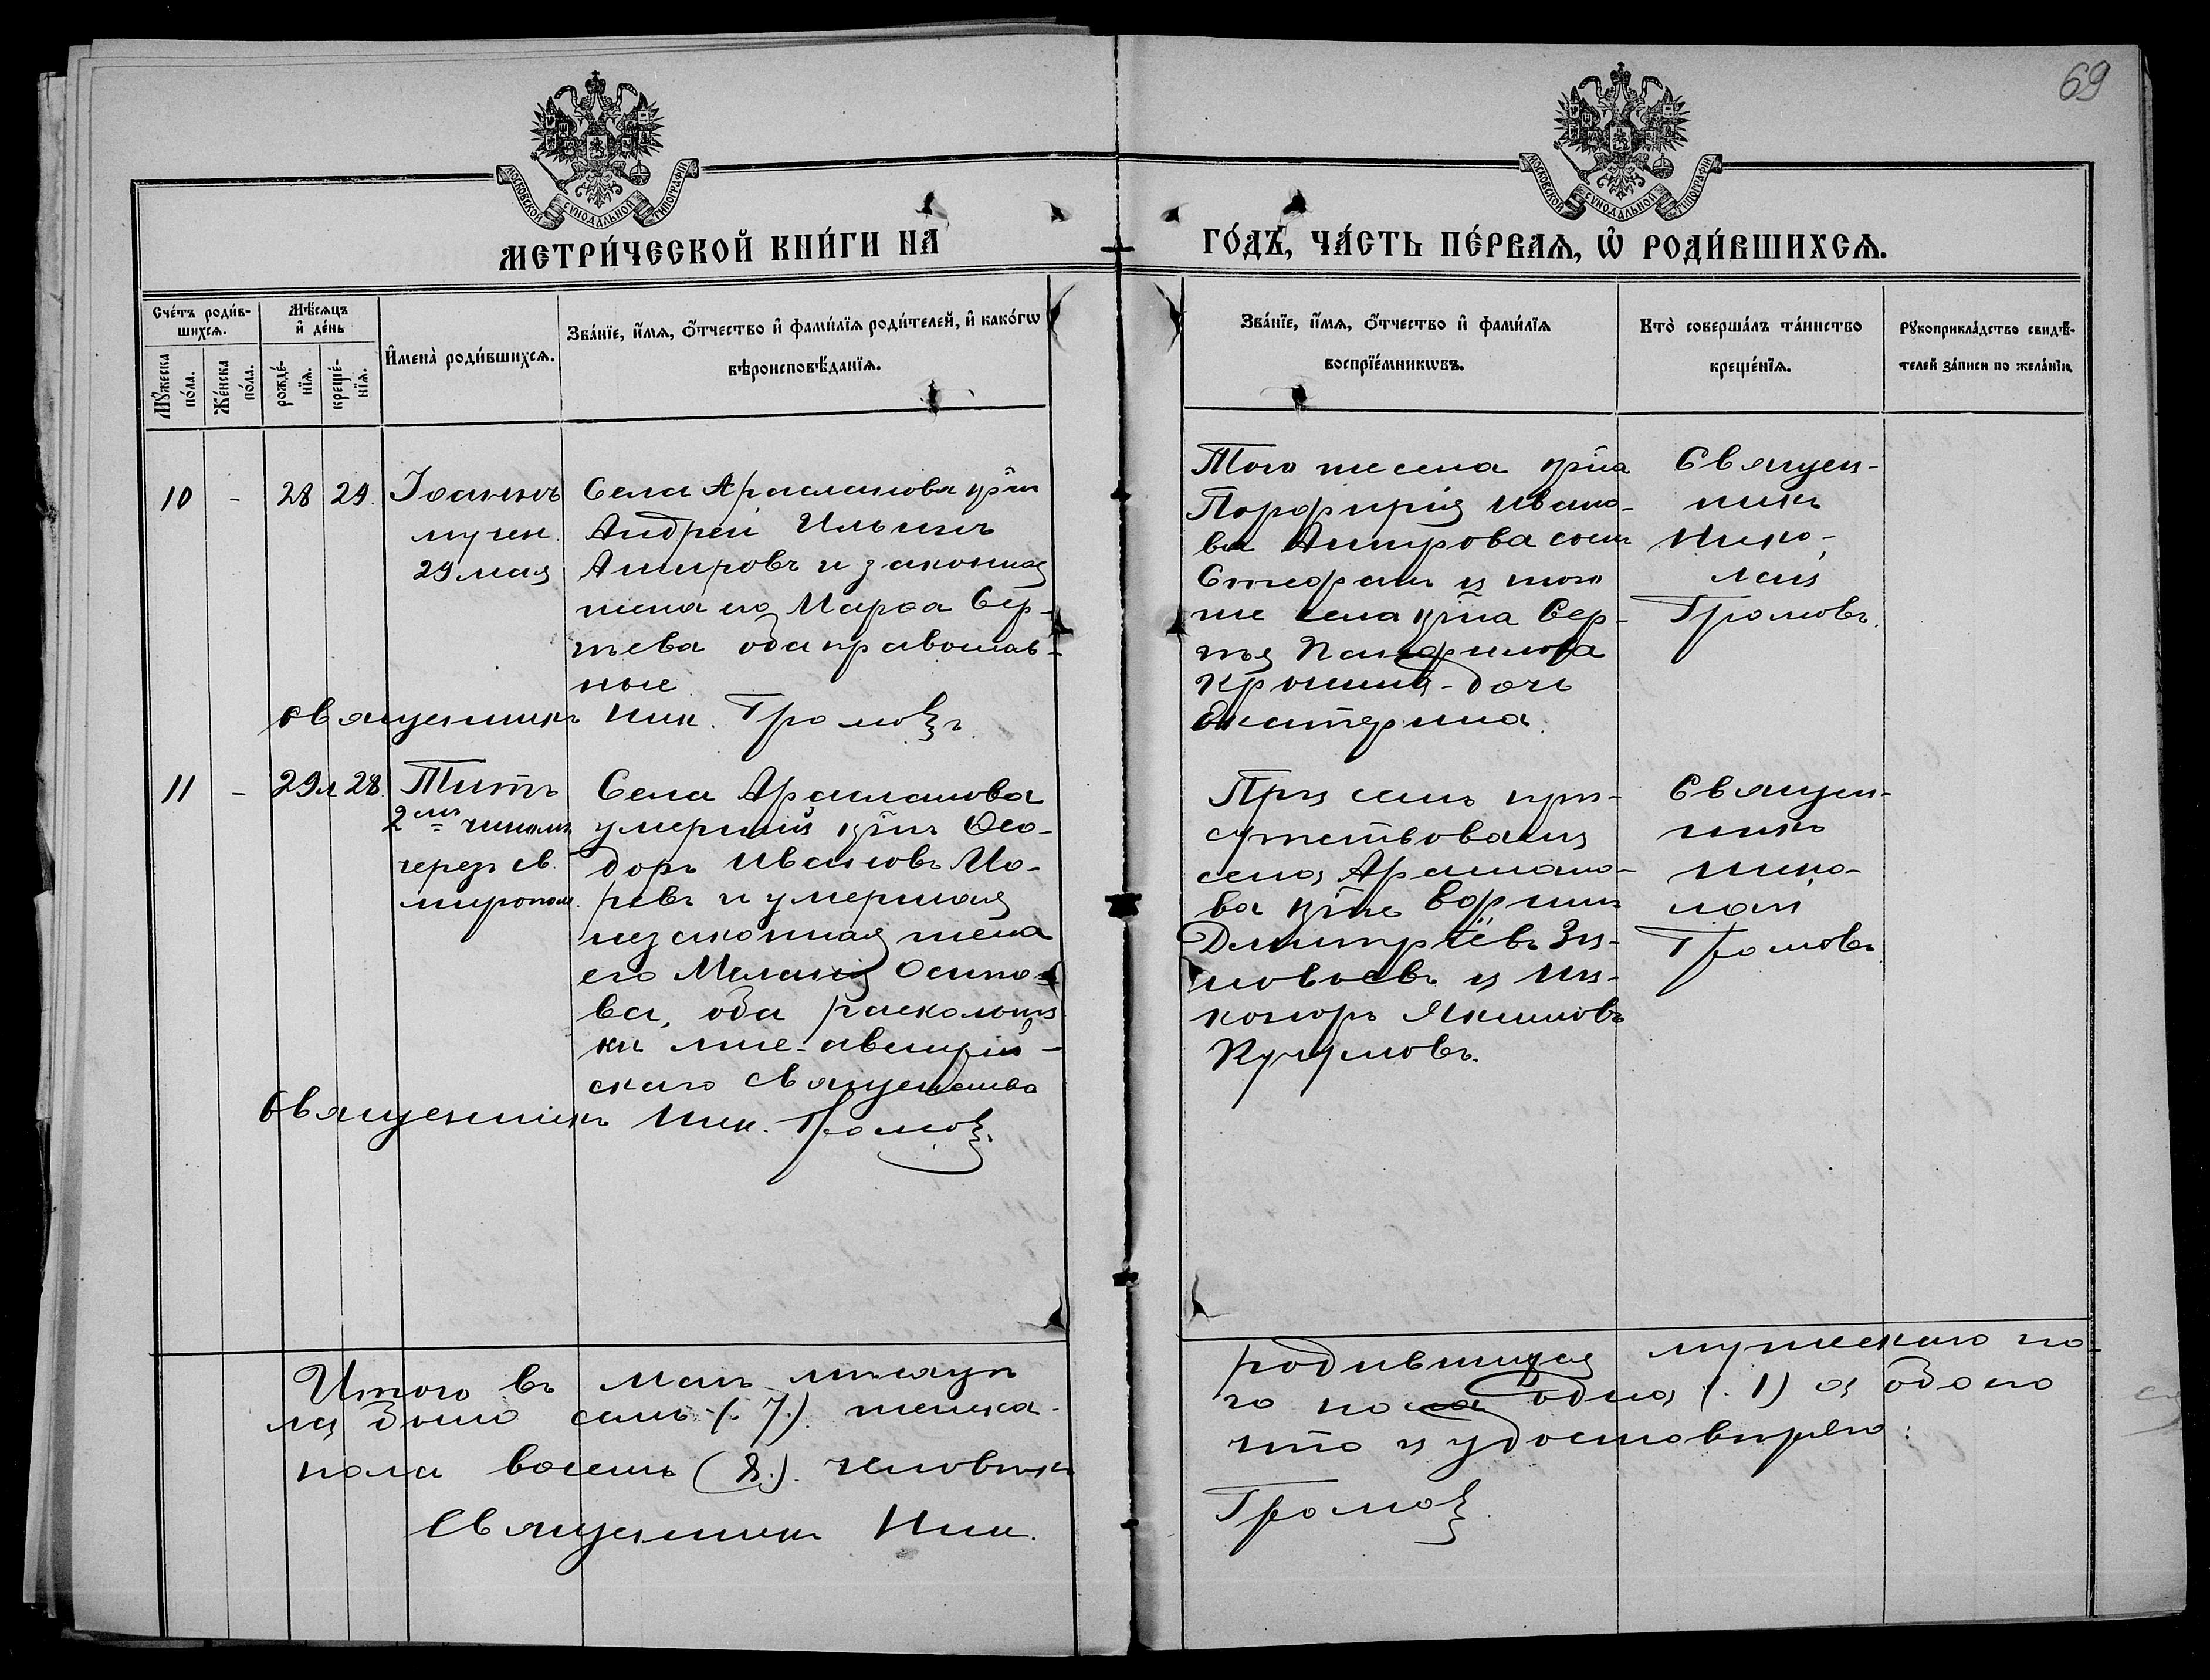 69
МОСКОВСКОЙ СУНОДАЛЬНОЙ ТИПОГРАФІИ
МОСКОВСКОЙ СУНОДАЛЬНОЙ ТИПОГРАФІИ
МЕТРИ́ЧЕСКОЙ КНИ́ГИ НА
ГО́ДЪ, ЧА́СТЬ ПЕ́РВАЯ, Ѡ҆ РОДИ́ВШИХСЯ.
Сче́тъ роди́в-
шихся.
Мѣ́сяцъ
и҆ де́нь
Му́жеска
по́ла.
Же́нска
по́ла.
рожде́-
нїя.
креще́-
нїя.
И҆мена̀ роди́вшихся.
Зва́нїе, и҆́мя, ѻ҆́тчество и҆ фами́лїя роди́телей, и҆ како́гѡ
вѣроисповѣ́данїя.
Зва́нїе, и҆́мя, ѻ҆́тчество и҆ фами́лїя
воспрїе́мникѡвъ.
Кто̀ соверша́лъ та́инство
креще́нїя.
Рꙋкоприкла́дство свидѣ́-
телей за́писи по жела́нїю.
10
-
28
29.
Іоаннъ
мучен.
29 мая
Села Арасланова кр͠нъ
Андрей Ильинъ
Амировъ и законная
жена его Марѳа Сер-
гѣева оба православ-
ные
Священникъ Ник. Громовъ
Того же села кр͠на
Порфирія Ивано-
ва Амирова сынъ
Стефанъ и того
же села кр͠на Сер-
гѣя Панфилова
дочь
Екатерина.
Священ-
никъ
Нико-
лай
Громовъ.
11
-
29 м
28.
Титъ
2мъ чиномъ
чрезъ св.
миропом.
Села Арасланова
умершій кр͠нъ Ѳео-
доръ Ивановъ Мо-
ревъ и умершая
незаконная жена
его Меланія Осипо-
ва, оба расколони-
ки лже-австрій-
скаго священства
Священникъ Ник. Громовъ
При семъ при-
сутствовали
села Араслано-
ва кр͠не Ефимъ
Димитріевъ Зи-
новьевъ и Ни-
коноръ Якимовъ
Кучумовъ.
Священ-
никъ
Нико-
лай
Громовъ
Итого въ маѣ мѣсяцѣ
родившихся мужескаго по-
ла было семь (. 7.) женска-
го пола одна (. 1) а обоего
пола восемь (8.) человѣкъ
что и удостовѣряю:
Священникъ Ник.
Громовъ